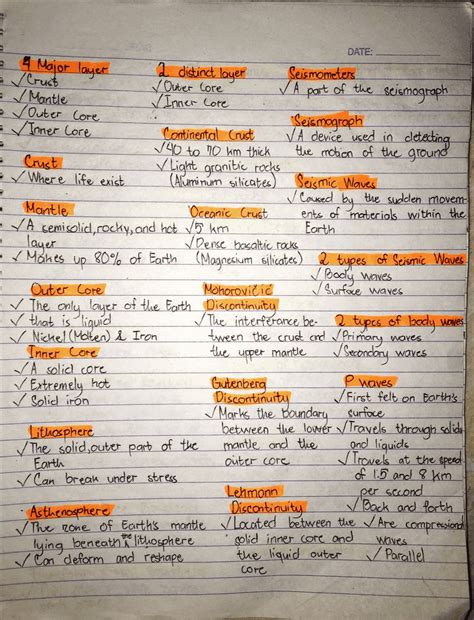 DATE:
4 Major layer
✓ Crust
✓ Mantle
✓ Outer Core
✓ Inner Core
Crust
✓ Where life exist
Mantle
✓ A semisolid, rocky, and hot
layer
✓ Makes up 80% of Earth
Outer Core
✓ The only layer of the Earth
✓ that is liquid
✓ Nickel (Molten) & Iron
Inner Core
✓ A solid core
✓ Extremely hot
✓ Solid iron
Lithosphere
✓ The solid, outer part of the
Earth
✓ Can break under stress
Asthenosphere
✓ The zone of Earth's mantle
lying beneath the lithosphere
✓ Can deform and reshape
2 distinct layer
✓ Outer Core
✓ Inner Core
Continental Crust
✓ 40 to 70 km thick
✓ Light granitic rocks
(Aluminum silicates)
Oceanic Crust
✓ 5 km
✓ Dense basaltic rocks
(Magnesium silicates)
Mohorovičić
Discontinuity
✓ The interference be-
tween the crust and
the upper mantle
Gutenberg
Discontinuity
✓ Marks the boundary
between the lower
mantle and the
outer core
Lehmann
Discontinuity
✓ Located between the
solid inner core and
the liquid outer
core
Seismometers
✓ A part of the seismograph
Seismograph
✓ A device used in detecting
the motion of the ground
Seismic Waves
✓ Caused by the sudden movem-
ents of materials within the
Earth
2 types of Seismic Waves
✓ Body waves
✓ Surface waves
2 types of body waves
✓ Primary waves
✓ Secondary waves
P waves
✓ First felt on Earth's
surface
✓ Travels through solids
and liquids
✓ Travels at the speed
of 1.5 and 8 km
per second
✓ Back and forth
✓ Are compressional
waves
✓ Parallel